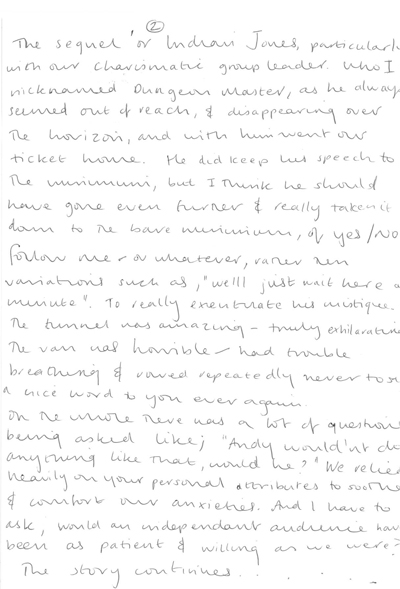 2
The sequel 'or Indiani Jones, particularly
with our charismatic group leader. Who I
nicknamed Dungeon Master, as he always
seemed out of reach, & disappearing over
the horizon, and with him went our
ticket home. He did keep his speech to
the minimum, but I think he should
have gone even further & really taken it
down to the bare minimium, of yes/no
follow me - or whatever, rather then
variations such as, "we'll just wait here a
minute". To really exentuate his mistique.
The tunnel was amazing - truly exhilerating
The van was horrible - had trouble
breathing & vowed repeatedly never to say
a nice word to you ever again.
On the whole there was a lot of questions
being asked like; "Andy would'nt do
anything like that, would he?" We relied
heavily on your personal attributes to soothe
& comfort our anxieties. And I have to
ask, would an independant audience have
been as patient & willing as we were?
The story continues . . . . .